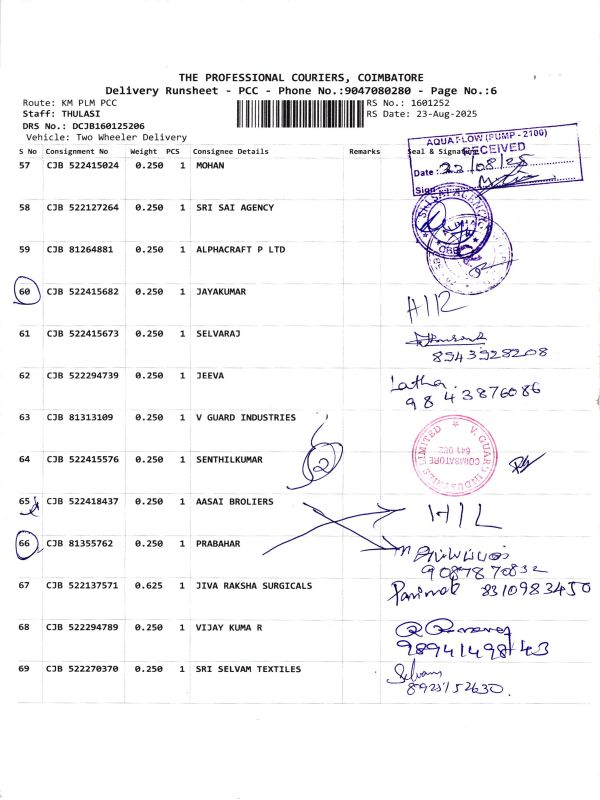 THE PROFESSIONAL COURIERS, COIMBATORE
Delivery Runsheet - PCC - Phone No.:9047080280 - Page No.:6
Route: KM PLM PCC RS No.: 1601252
Staff: THULASI RS Date: 23-Aug-2025
DRS No.: DCJB160125206
Vehicle: Two Wheeler Delivery
AQUAFLOW (PUMP - 2100)
RECEIVED
S No Consignment No Weight PCS Consignee Details Remarks Seal & Signature
Date: 22/08/25
Sign
57 CJB 522415024 0.250 1 MOHAN
58 CJB 522127264 0.250 1 SRI SAI AGENCY
SRI SAI AGENCY
59 CJB 81264881 0.250 1 ALPHACRAFT P LTD
60 CJB 522415682 0.250 1 JAYAKUMAR
61 CJB 522415673 0.250 1 SELVARAJ
8943928208
62 CJB 522294739 0.250 1 JEEVA Latha
9843876086
63 CJB 81313109 0.250 1 V GUARD INDUSTRIES
V. GUARD INDUSTRIES LIMITED
COIMBATORE
641 062
64 CJB 522415576 0.250 1 SENTHILKUMAR
65 CJB 522418437 0.250 1 AASAI BROLIERS
66 CJB 81355762 0.250 1 PRABAHAR
9087870832
67 CJB 522137571 0.625 1 JIVA RAKSHA SURGICALS 8310983450
68 CJB 522294789 0.250 1 VIJAY KUMA R
9894149843
69 CJB 522270370 0.250 1 SRI SELVAM TEXTILES Selvam